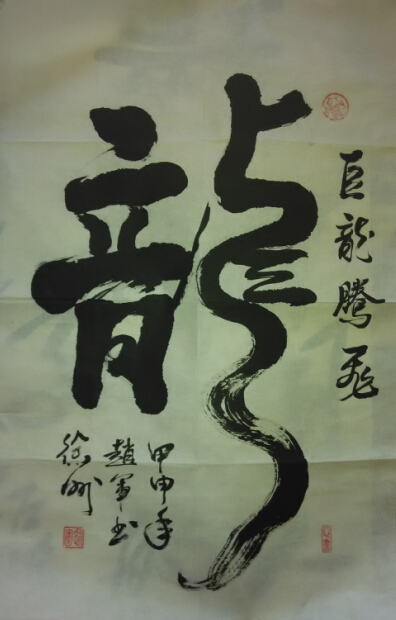 龍
巨龍騰飛
甲申年
趙軍书
徐州